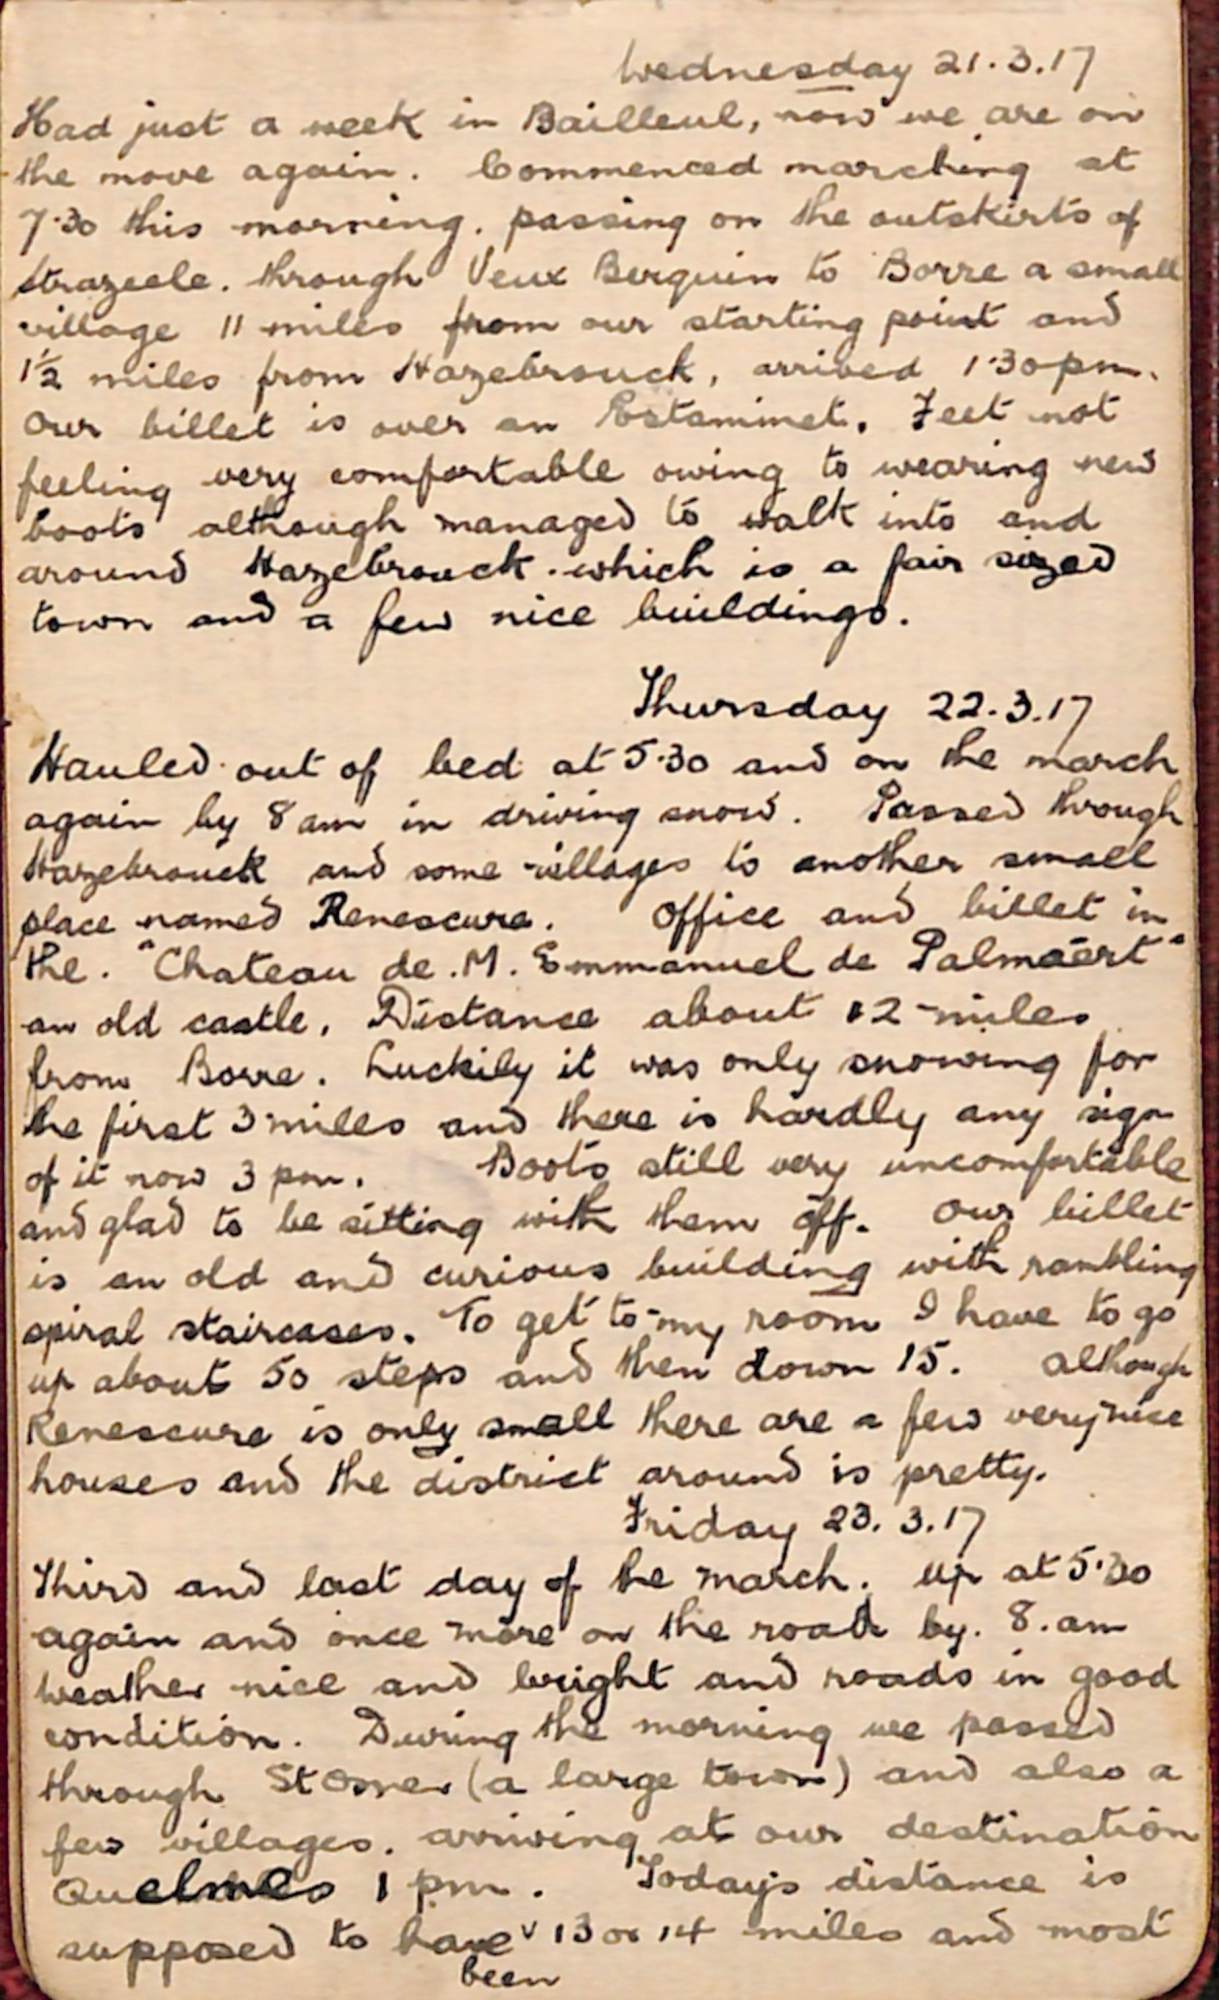 Wednesday 21.3.17
Had just a week in Bailleul, now we are on
the move again. Commenced marching at
7.30 this morning. passing on the outskirts of
Strazeele. through Veux Berquin to Borre a small
village 11 miles from our starting point and
1½ miles from Hazebrouck, arrived 1.30 pm.
Our billet is over an Estaminet. Feet not
feeling very comfortable owing to wearing new
boots although managed to walk into and
around Hazebrouck. which is a fair sized
town and a few nice buildings.
Thursday 22.3.17
Hauled out of bed at 5.30 and on the march
again by 8 am in driving snow. Passed through
Hazebrouck and some villages to another small
place named Renescure. Office and billet in
the. "Chateau de. M. Emmanuel de Palmaert"
an old castle. Distance about 12 miles
from Borre. Luckily it was only snowing for
the first 3 miles and there is hardly any sign
of it now 3 pm. Boots still very uncomfortable
and glad to be sitting with them off. Our billet
is an old and curious building with rambling
spiral staircases. To get to my room I have to go
up about 50 steps and then down 15. Although
Renescure is only small there are a few very nice
houses and the district around is pretty.
Friday 23.3.17
Third and last day of the march. Up at 5.30
again and once more on the road by. 8. am
weather nice and bright and roads in good
condition. During the morning we passed
through St Omer (a large town) and also a
few villages. arriving at our destination
Quelmes 1 pm. Today's distance is
supposed to have v 13 or 14 miles and most
been